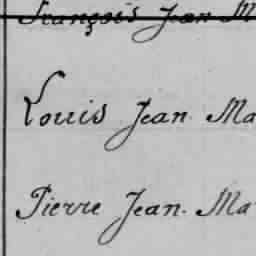 François Jean M
Louis Jean Ma
Pierre Jean. Ma